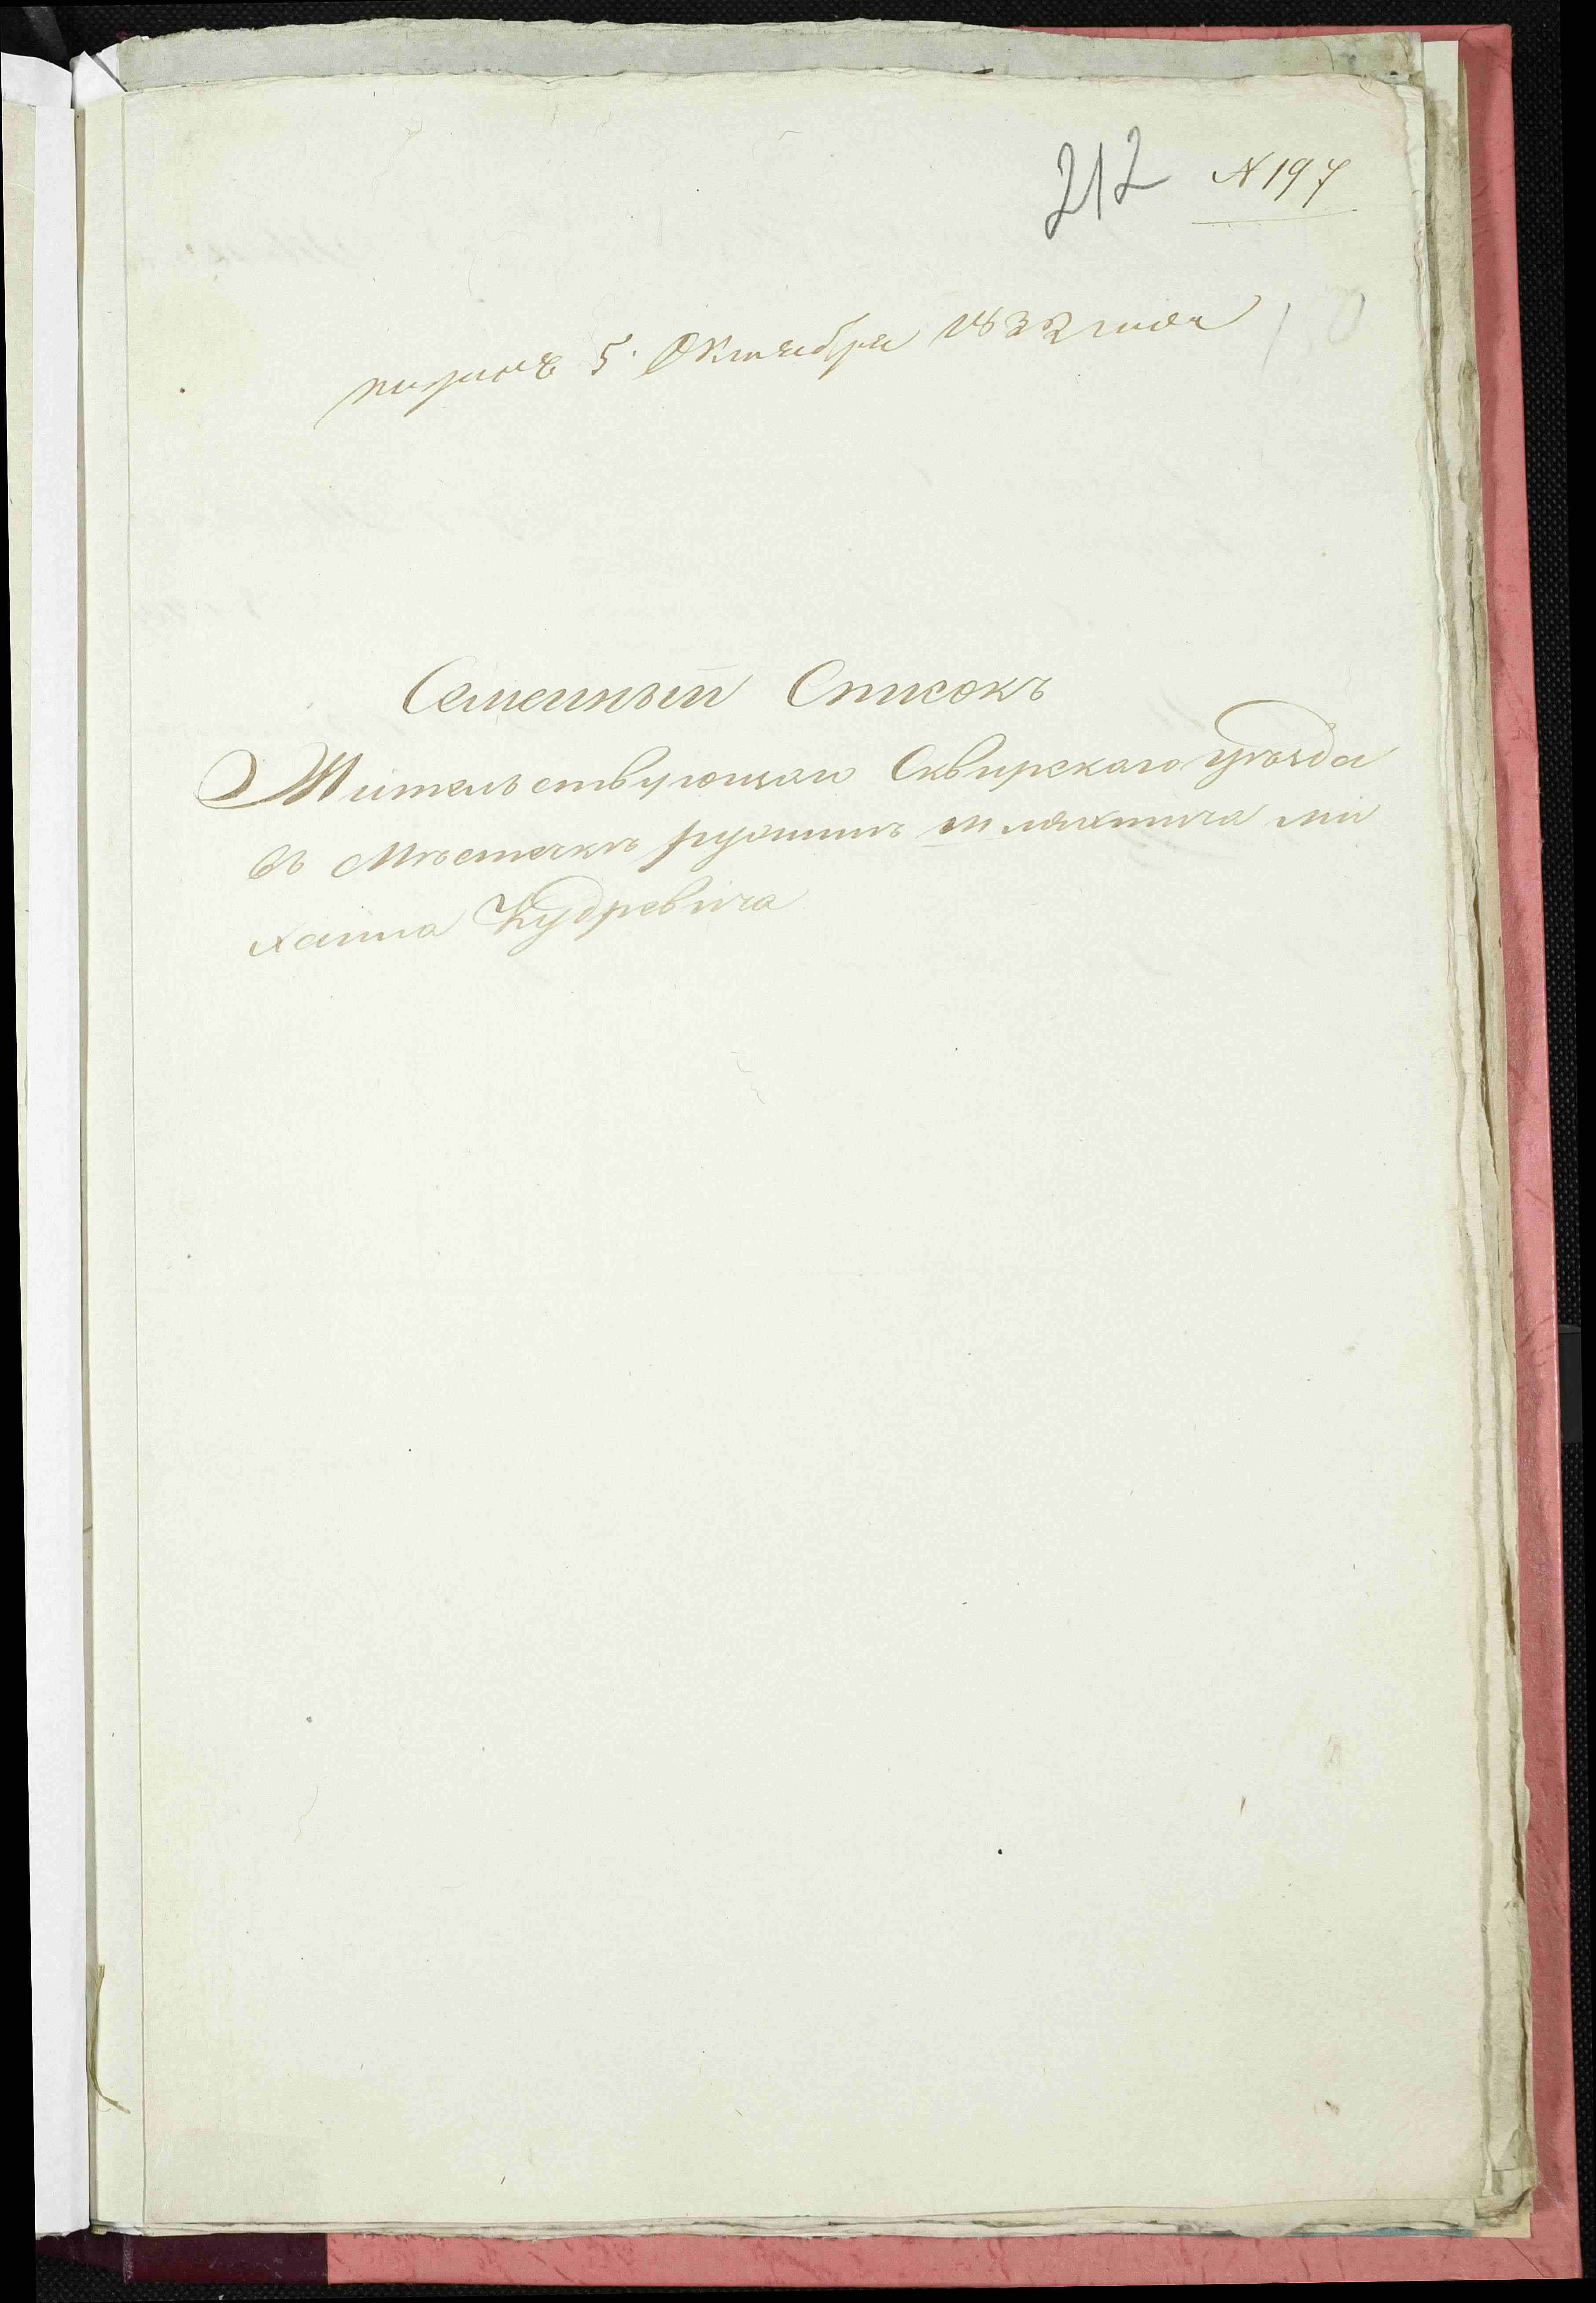 212 № 197
5 Октября 1832 года
Семейный Списокъ
Жительствующаго Сквирскаго уѣзда
въ Мѣстечкѣ ружинѣ шляхтича ми
хаила Кудревича